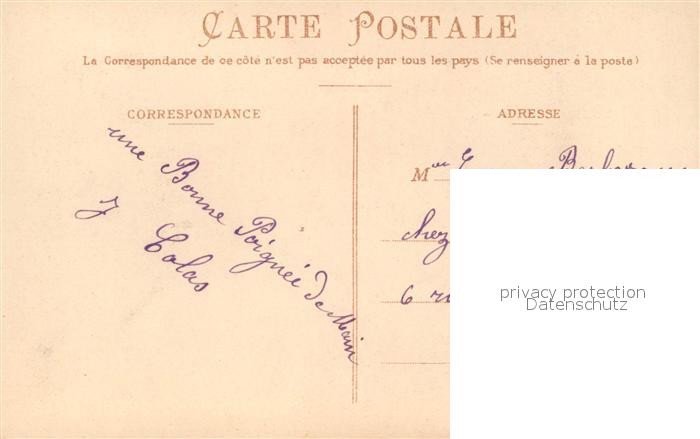 CARTE POSTALE
La Correspondance de ce côté n'est pas acceptée par tous les pays (Se renseigner à la poste)
CORRESPONDANCE
une Bonne Poignée de Main
J Colas
ADRESSE
M
chez
6
privacy protection
Datenschutz